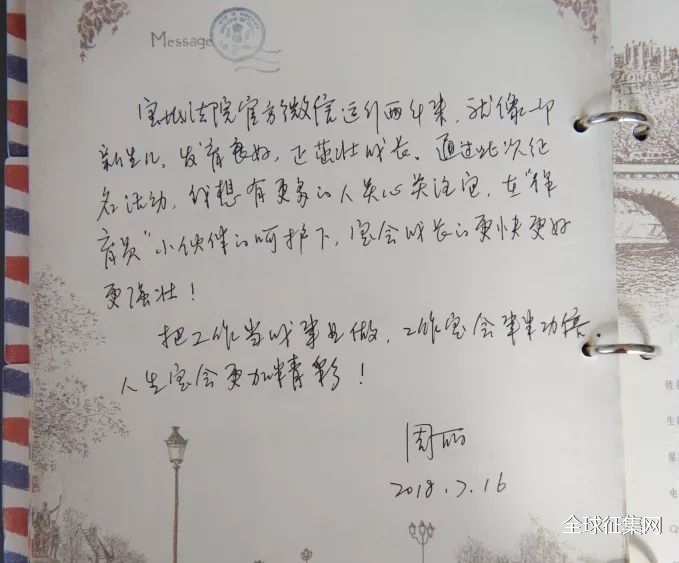 Message
宝坻法院官方微信运行两年来,就像一
新生儿、发育良好,正茁壮成长。通过此次征
名活动,我想有更多的人关心关注它,在“保
育员”小伙伴的呵护下,定会成长的更快更好
更强壮!
把工作当成事业做,工作定会事半功倍,
人生定会更加精彩!
周
2018.7.16
姓
生
星
电
Q
全球征集网